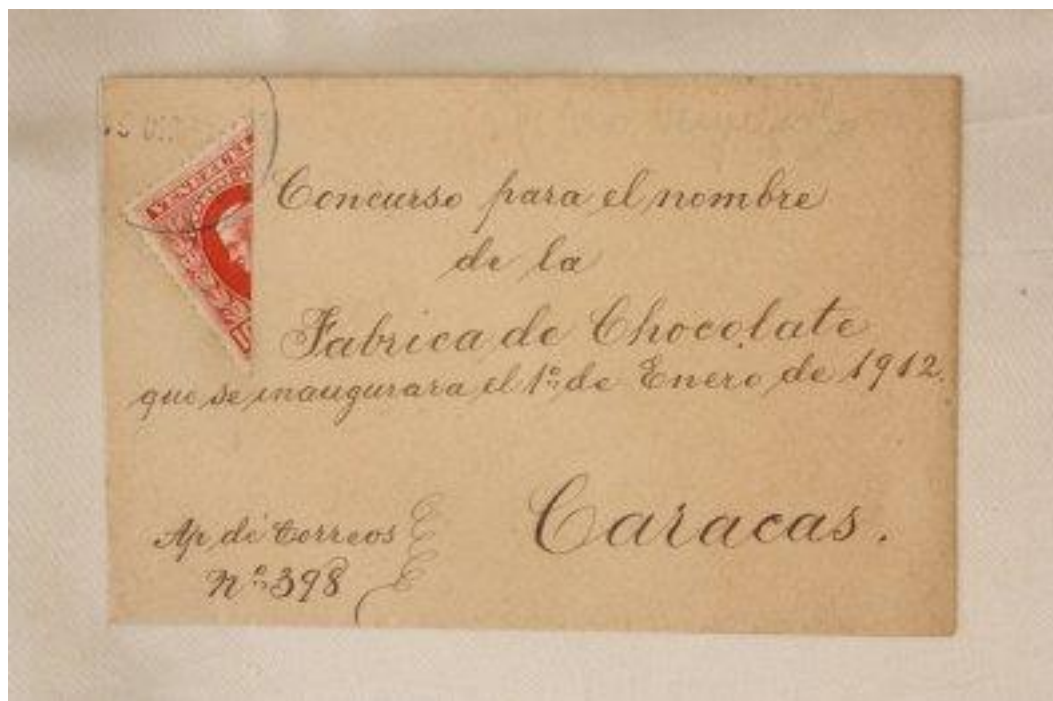 Concurso para el nombre
de la
Fabrica de Chocolate
que se inaugurara el 1º de Enero de 1912.
Ap. de Correos
Nº 398
Caracas.